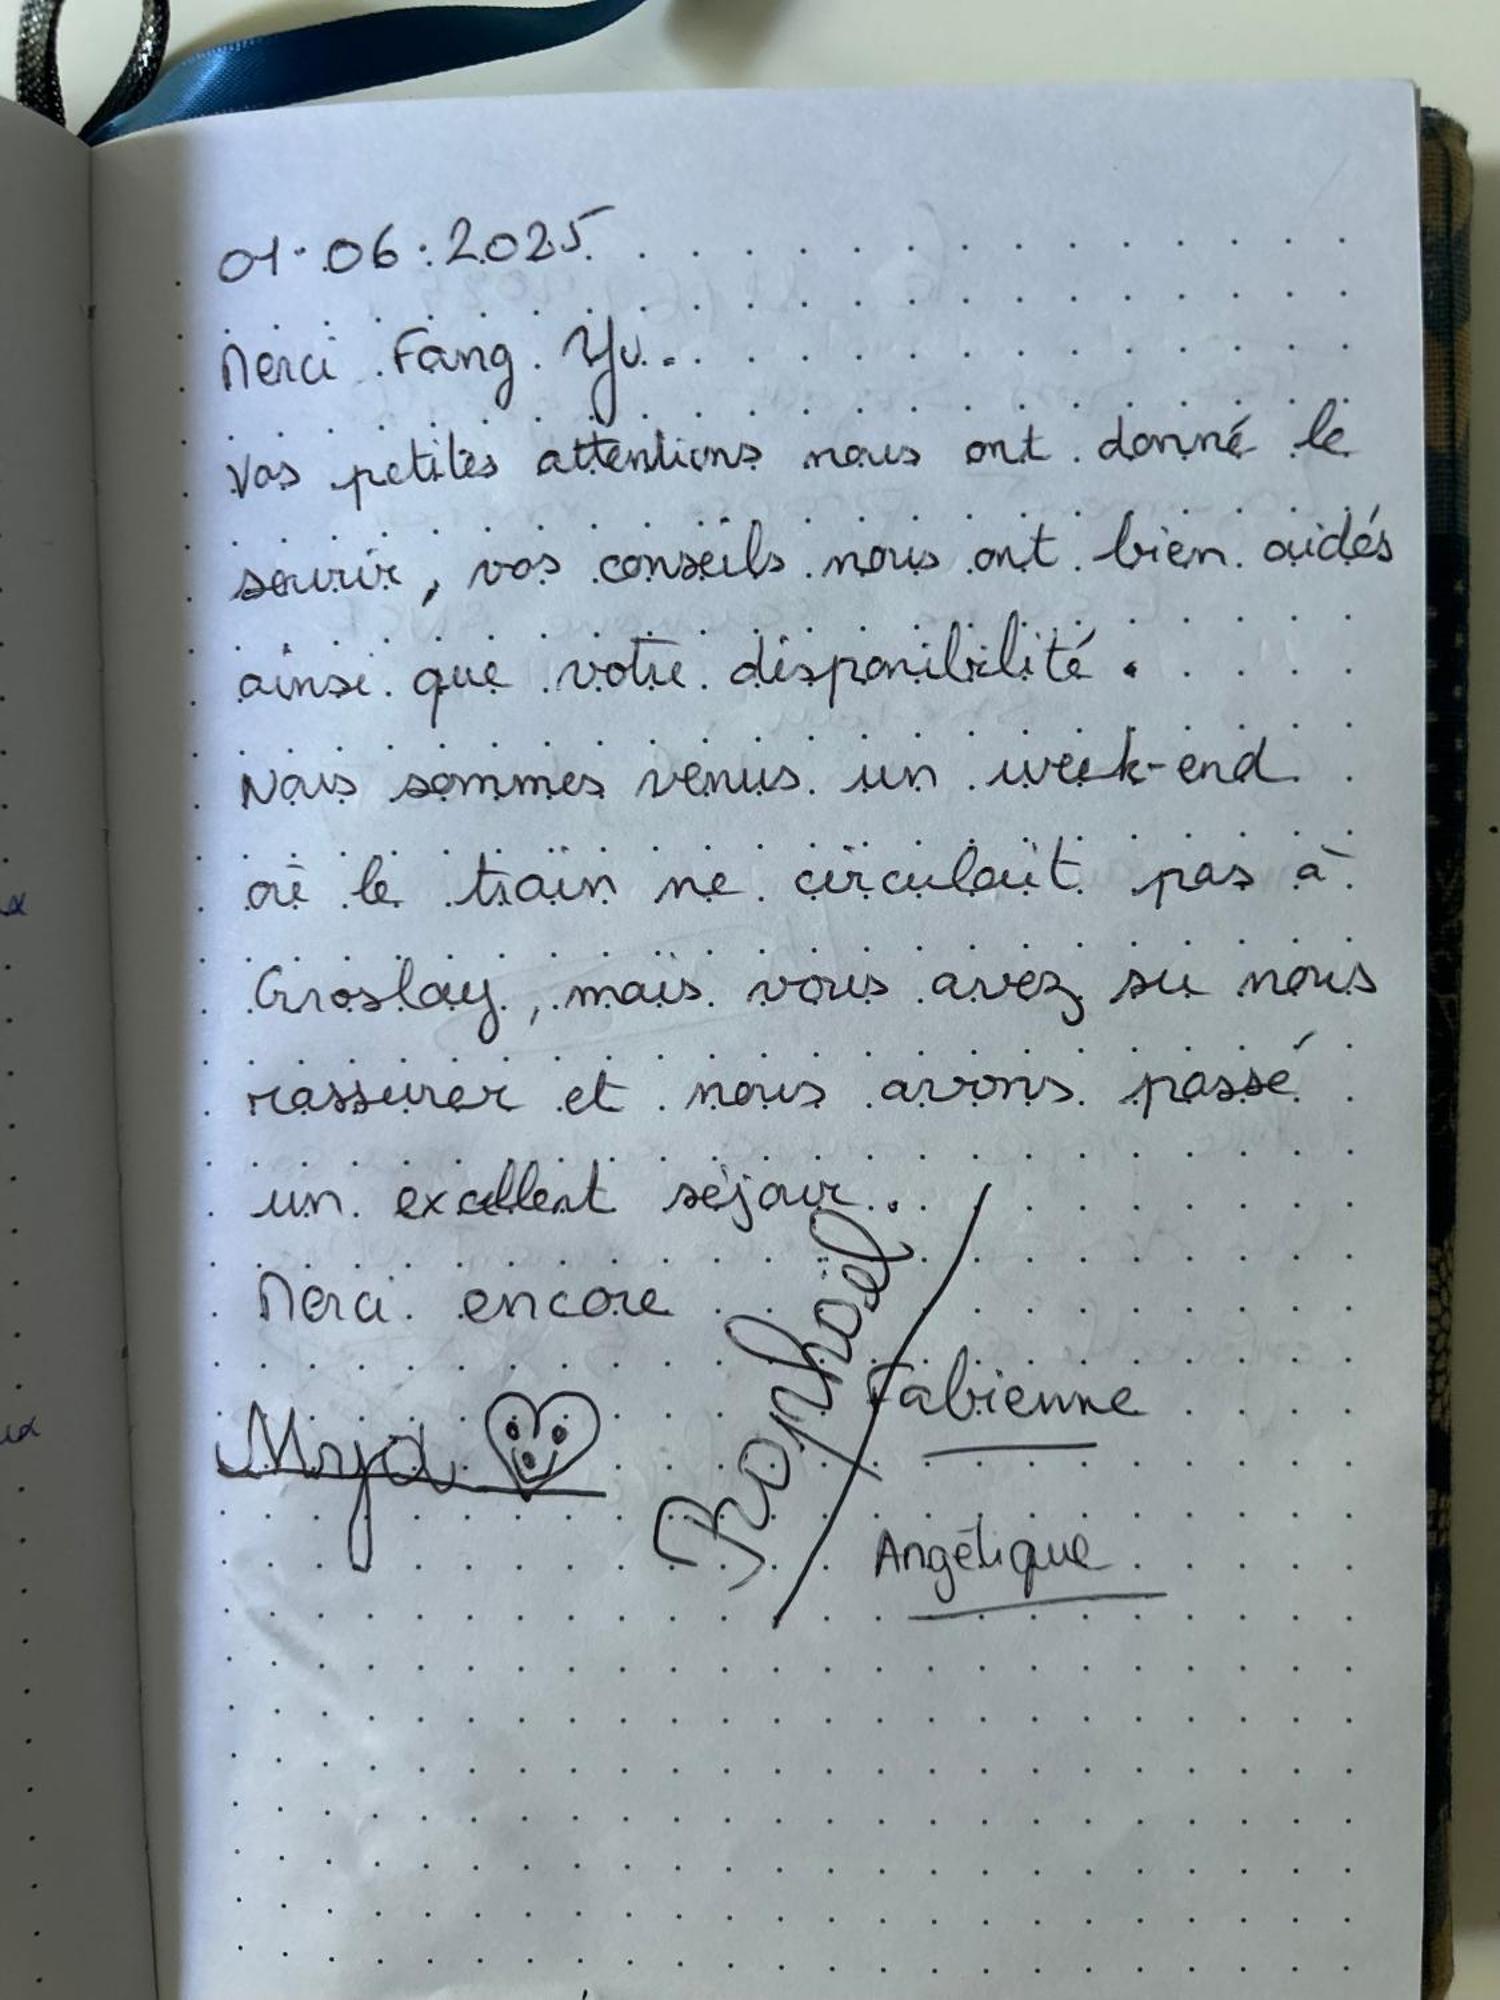 01.06.2025
Merci Fang Yu.
Vos petites attentions nous ont donné le
sourir, vos conseils nous ont bien aidés
ainsi que votre disponibilité.
Nous sommes venus un week-end
où le train ne circulait pas à
Groslay, mais vous avez su nous
rassurer et nous avons passé
un excellent séjour.
Merci encore
Raphaël
Fabienne
Angélique